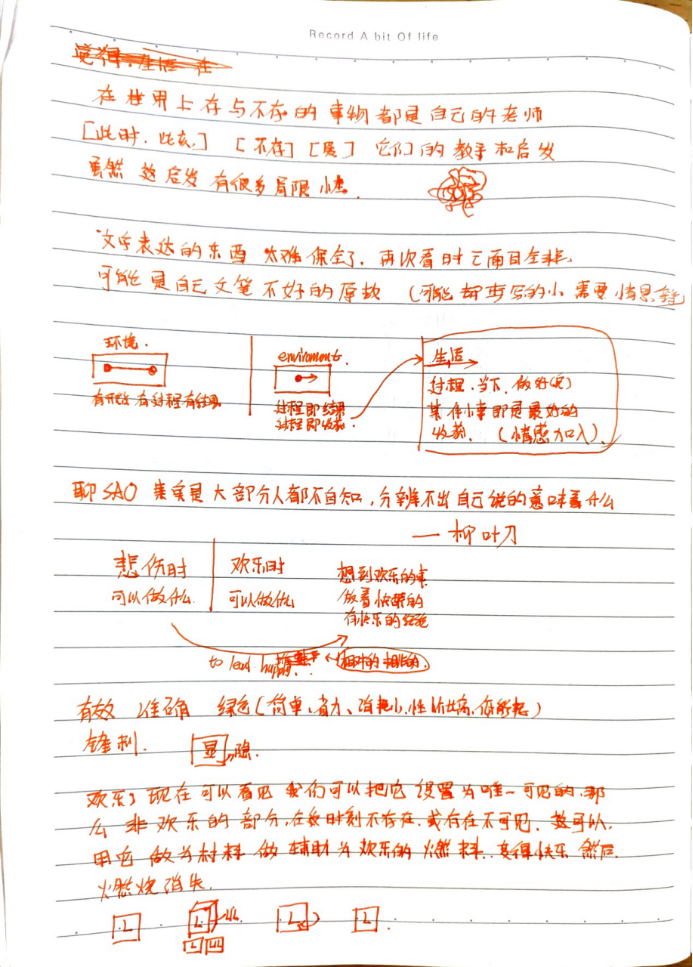 Record A bit Of life
在世界上存与不存的事物都是自己的老师
[此时.此刻.] [不存] [是] 它们的教导和启发
虽然 这启发 有很多局限性.
文字表达的东西 太难保全了. 再次看时已面目全非.
可能是自己文笔不好的原故 (可能却步写的小 需要情景
环境.
有开始 有过程 有结果
environments.
过程即结果
过程即收获
生活
过程.当下.做好(它)
某件小事即是最好的
收获. (情感加入).
聊SAO 其实是大部分人都不自知,分辨不出自己说的意味着什么
— 柳叶刀
悲伤时
可以做什么
欢乐时
可以做什么
想到欢乐的事
做着快乐的
有快乐的经验
to lead happy
相对的 相
有效 准确 绿色(简单、省力、消耗小.性价比高.
锋利. 显 隐.
欢乐,现在可以看见 我们可以把它设置为唯一可见的,那
么 非欢乐的部分,在数时刻不存在.或存在不可见. 数可以,
用它 做为材料 做辅助为欢乐的燃料. 变得快乐 然后
燃烧消失.